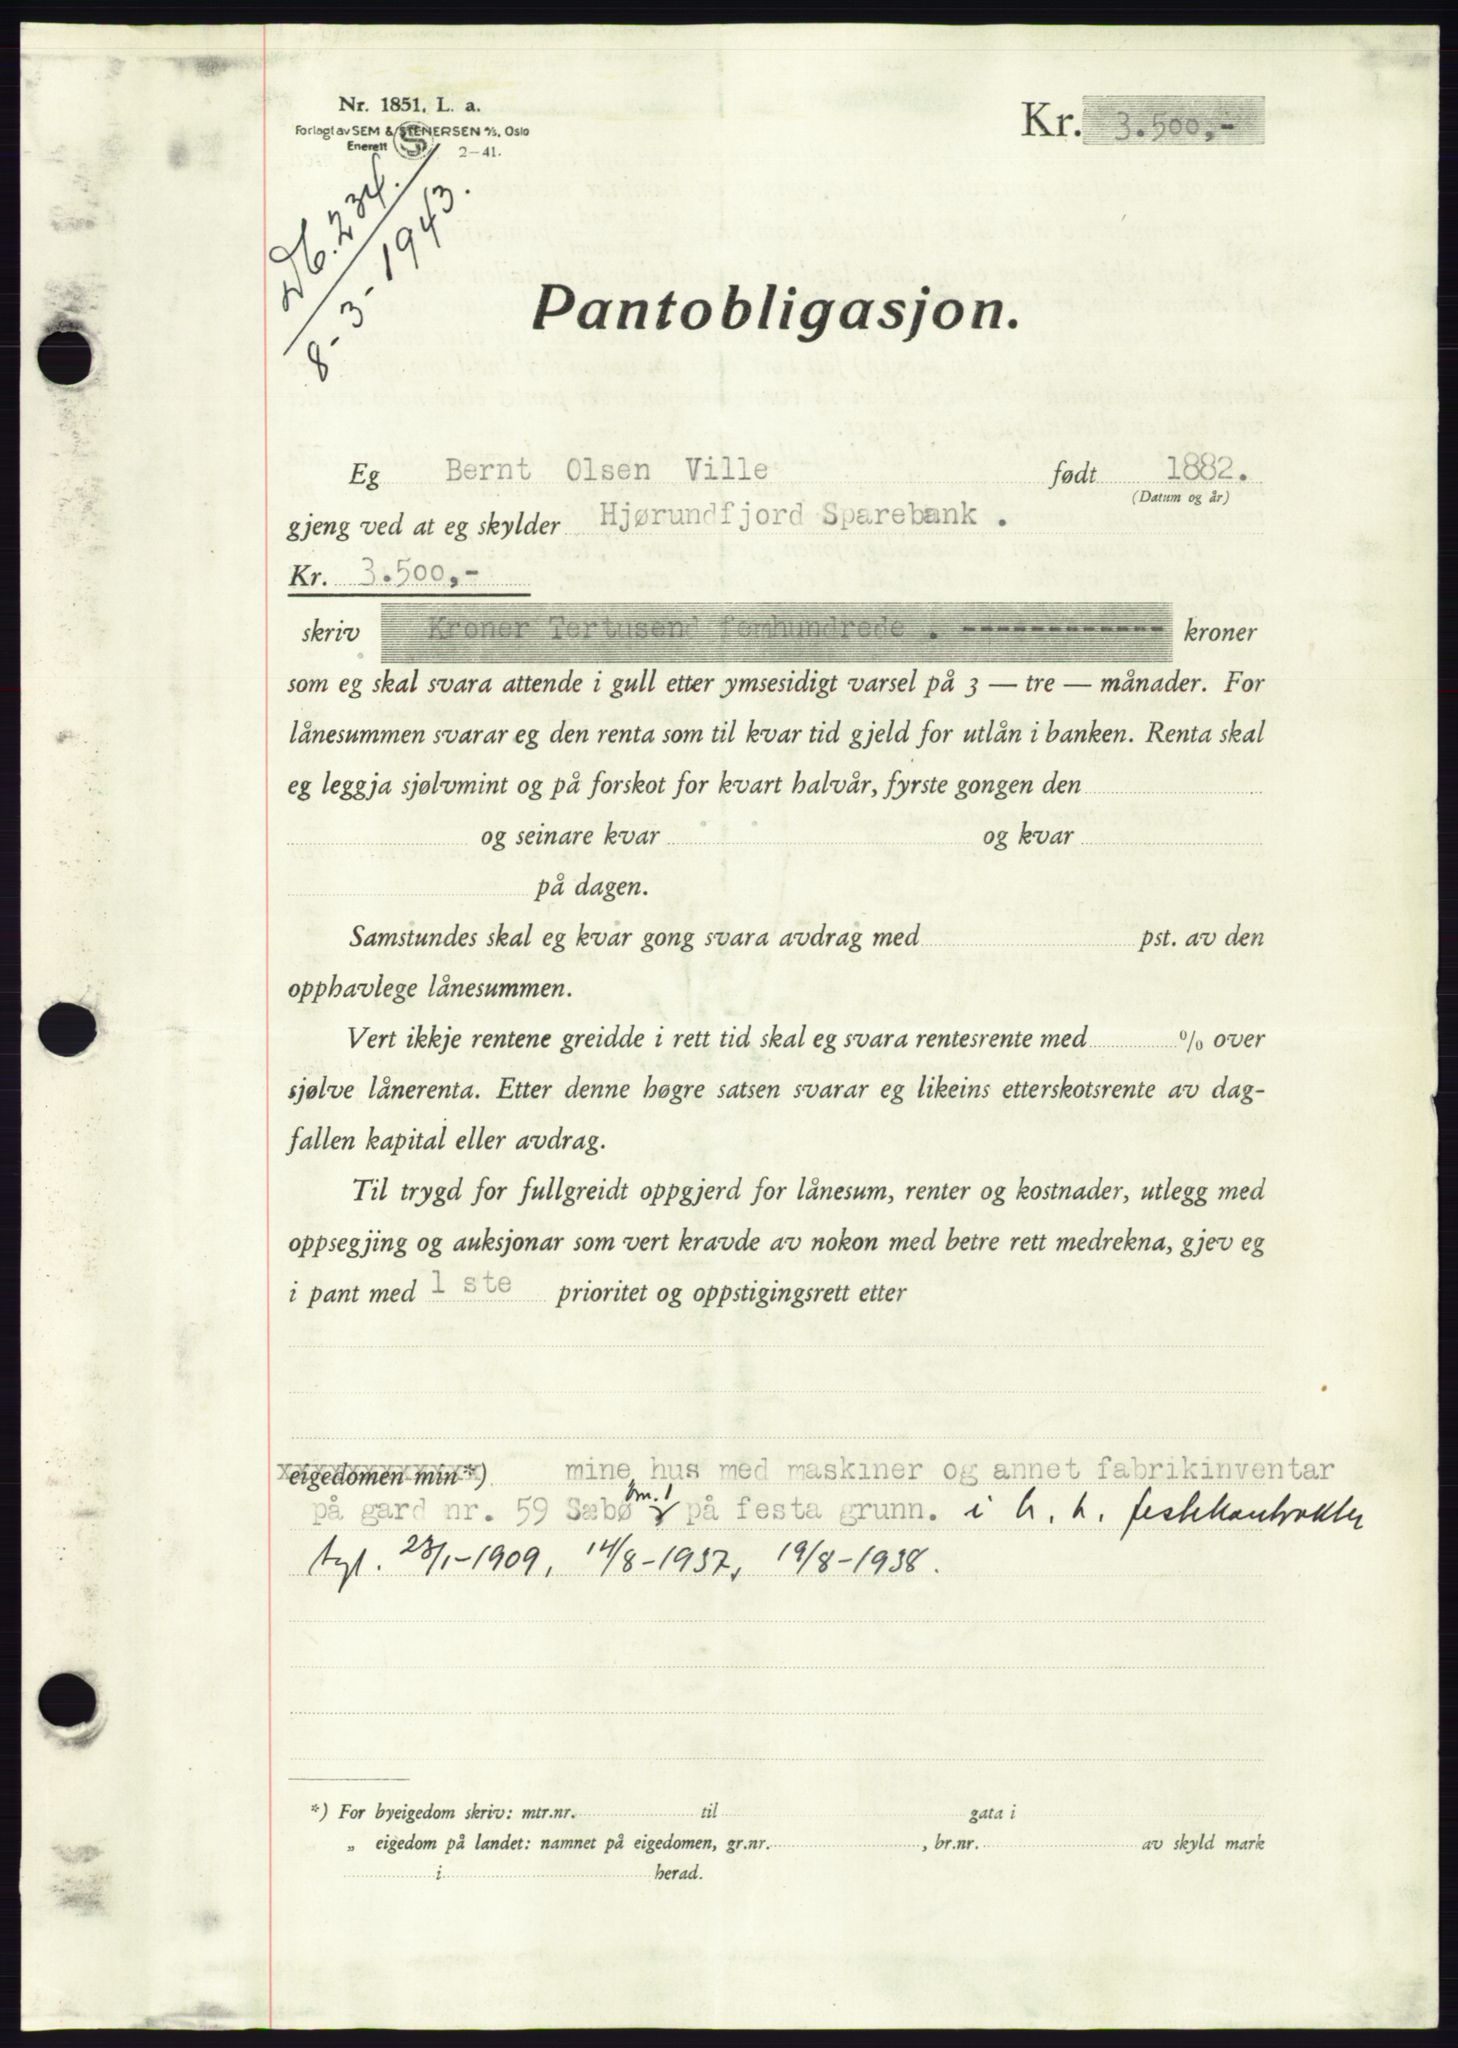 Nr. 1851. L. a.
Forlagt av SEM & STENERSEN A/S, Oslo
Enerett S 2-41.
Kr. 3.500,-
Db. 234.
8-3-1943.
Pantobligasjon.
Eg Bernt Olsen Ville født 1882.
(Datum og år)
gjeng ved at eg skylder Hjørundfjord Sparebank .
Kr. 3.500,-
skriv Kroner Tertusend femhundrede . ------------ kroner
som eg skal svara attende i gull etter ymsesidigt varsel på 3 — tre — månader. For
lånesummen svarar eg den renta som til kvar tid gjeld for utlån i banken. Renta skal
eg leggja sjølvmint og på forskot for kvart halvår, fyrste gongen den
og seinare kvar og kvar
på dagen.
Samstundes skal eg kvar gong svara avdrag med pst. av den
opphavlege lånesummen.
Vert ikkje rentene greidde i rett tid skal eg svara rentesrente med % over
sjølve lånerenta. Etter denne høgre satsen svarar eg likeins etterskotsrente av dag-
fallen kapital eller avdrag.
Til trygd for fullgreidt oppgjerd for lånesum, renter og kostnader, utlegg med
oppsegjing og auksjonar som vert kravde av nokon med betre rett medrekna, gjev eg
i pant med 1 ste prioritet og oppstigingsrett etter
eigedomen min*) mine hus med maskiner og annet fabrikinventar
på gard nr. 59 Sæbø bm. 1 på festa grunn. i h. h. festekontrakter
tgl. 23/1-1909, 14/8-1937, 19/8-1938.
*) For byeigedom skriv: mtr.nr. til gata i
„ eigedom på landet: namnet på eigedomen, gr.nr. , br.nr. av skyld mark
i herad.